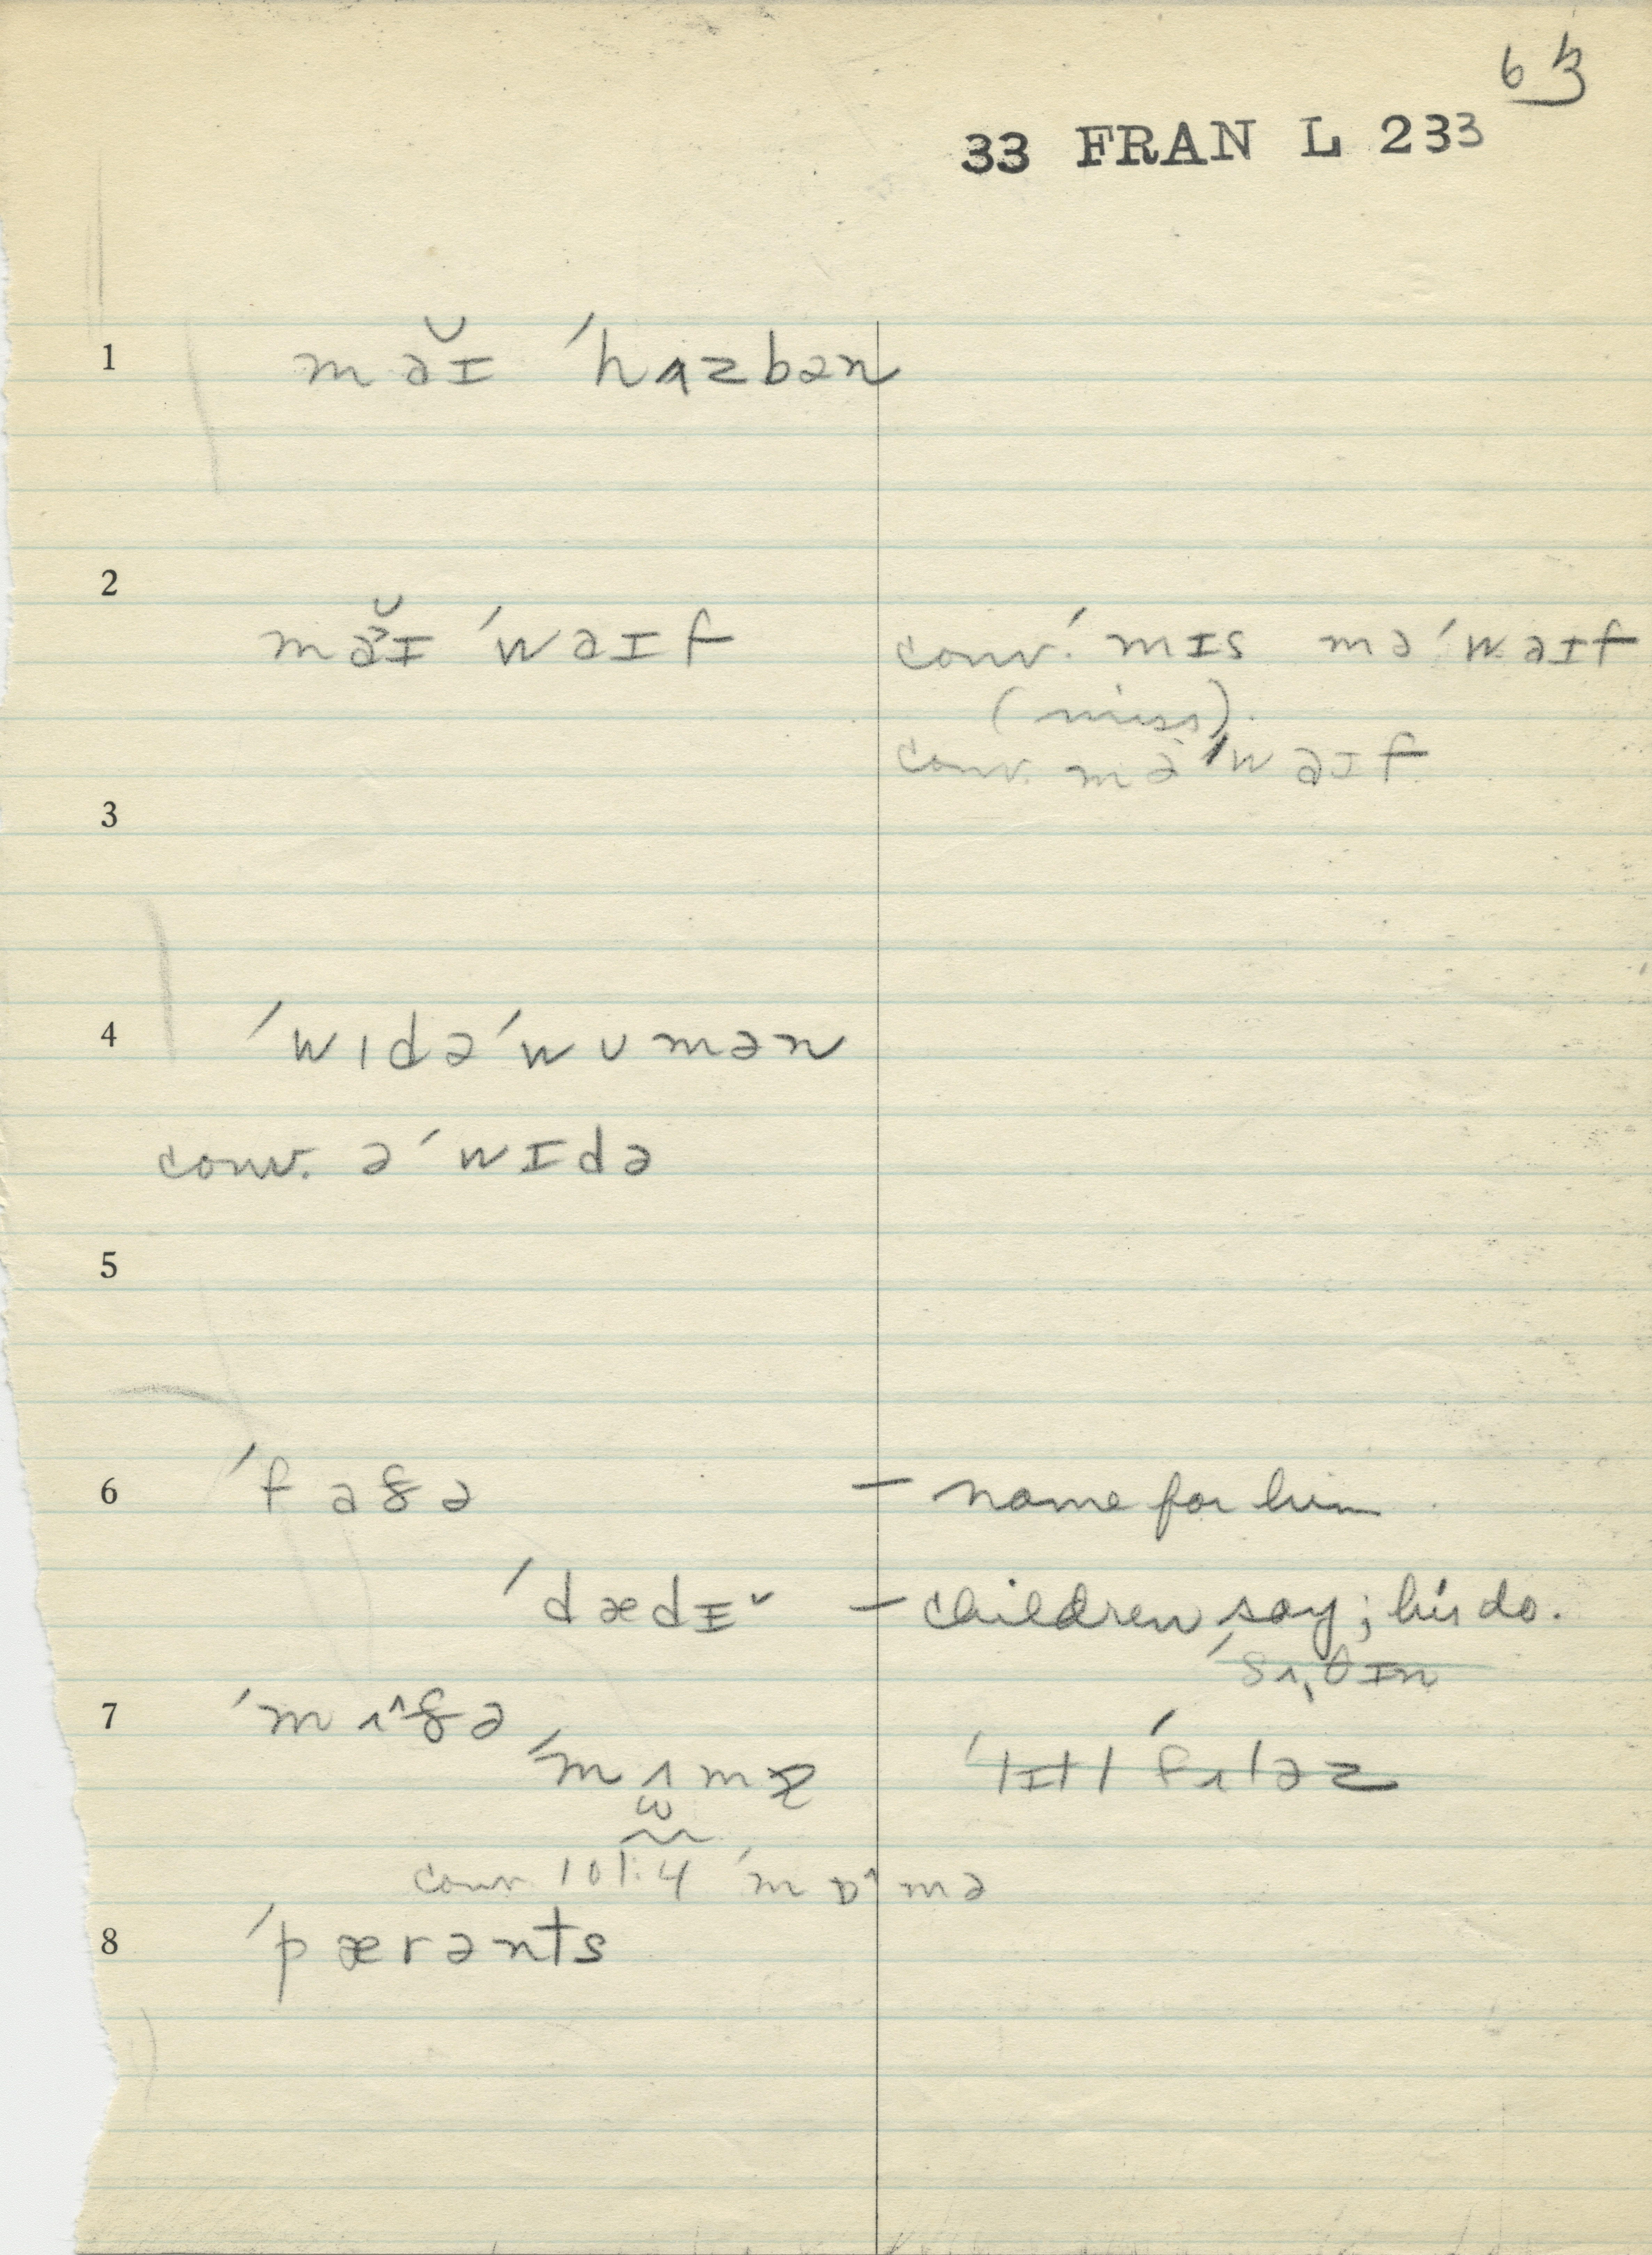 63
33 FRAN L 233
1 mə̆ɪ ˈhʌzbən
2 mə̆ɪ ˈwəɪf
conv. ˈmɪs məˈwəɪf
(miss).
conv. məˈwəɪf
3
4 ˈwɪdəˈwumən
conv. əˈwɪdə
5
6 ˈfaðə — name for him.
ˈdædɪ˅ — children say; his do.
7 ˈmʌ^ðə
ˈmʌmɪ
conv. 101:4 ˈmɒ^mə
8 ˈpærənts